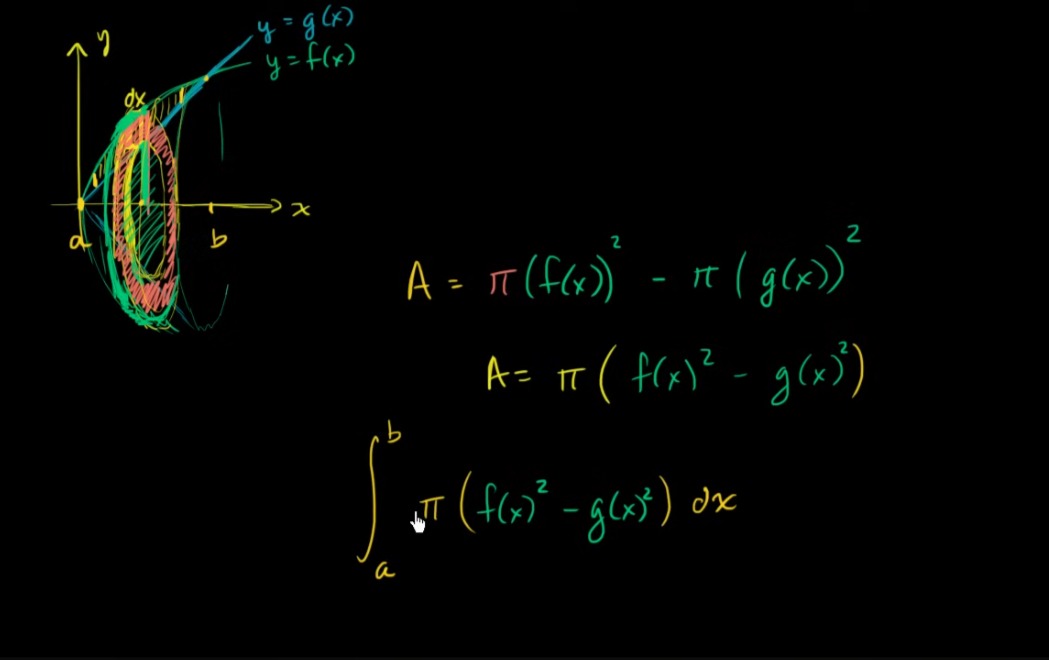 y = g(x)
y
y = f(x)
dx
x
a
b
A = π(f(x))² - π(g(x))²
A = π(f(x)² - g(x)²)
∫ₐᵇ π(f(x)² - g(x)²) dx